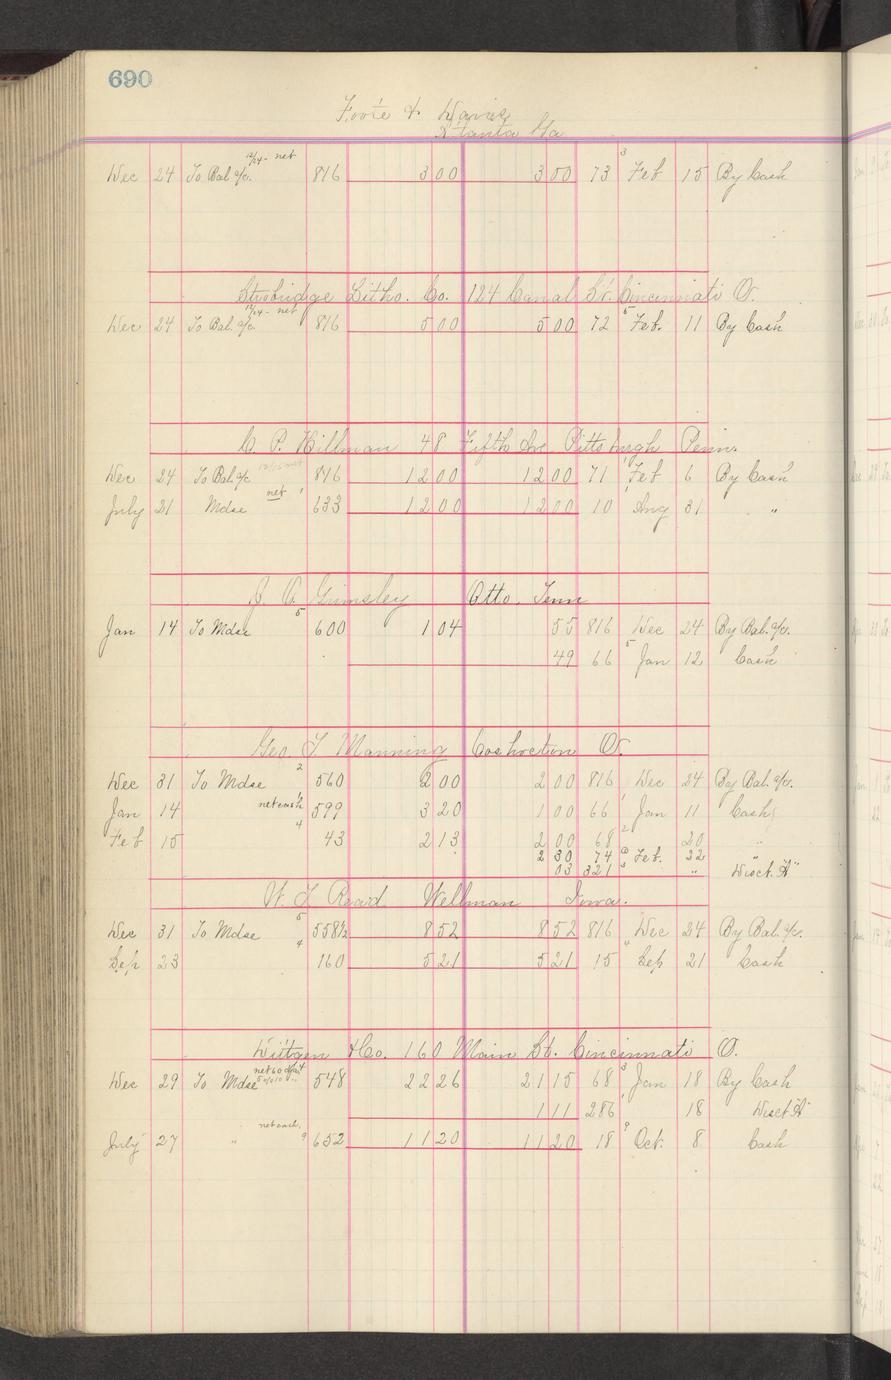 690
Foote & Davies
Atlanta Ga
12/24 - net
Dec 24 To Bal a/c. 816 3 00 3 00 73 3 Feb 15 By Cash
Strobridge Litho. Co. 124 Canal St. Cincinnati O.
12/24 - net
Dec 24 To Bal. a/c. 816 5 00 5 00 72 5 Feb. 11 By Cash
C. P. Hillman 48 Fifth Ave. Pittsburgh Penn.
Dec 24 To Bal. a/c 816 12 00 12 00 71 1 Feb 6 By Cash
July 21 Mdse net 1 633 12 00 12 00 10 1 Aug 31 "
Grimsley Otto, Tenn
Jan 14 To Mdse 5 600 1 04 55 816 Dec 24 By Bal. a/c.
49 66 5 Jan 12 Cash
Geo. T Manning Coshocton O.
Dec 31 To Mdse 2 560 2 00 2 00 816 Dec 24 By Bal. a/c.
Jan 14 net cash 1 599 3 20 1 00 66 1 Jan 11 Cash
Feb 15 4 43 2 13 2 00 68 2 20 "
2 30 74 Feb. 22 "
03 321 3 " Disct. "A"
W. T. Read Wellman Iowa.
Dec 31 To Mdse 5 558½ 8 52 8 52 816 Dec 24 By Bal. a/c.
Sep 23 4 160 5 21 5 21 15 Sep 21 Cash
Wiltgen & Co. 160 Main St. Cincinnati O.
Dec 29 To Mdse net 60 days 548 22 26 21 15 68 3 Jan 18 By Cash
1 11 286 1 18 Disct "A"
July 27 " net cash. 9 652 11 20 11 20 18 9 Oct. 8 Cash